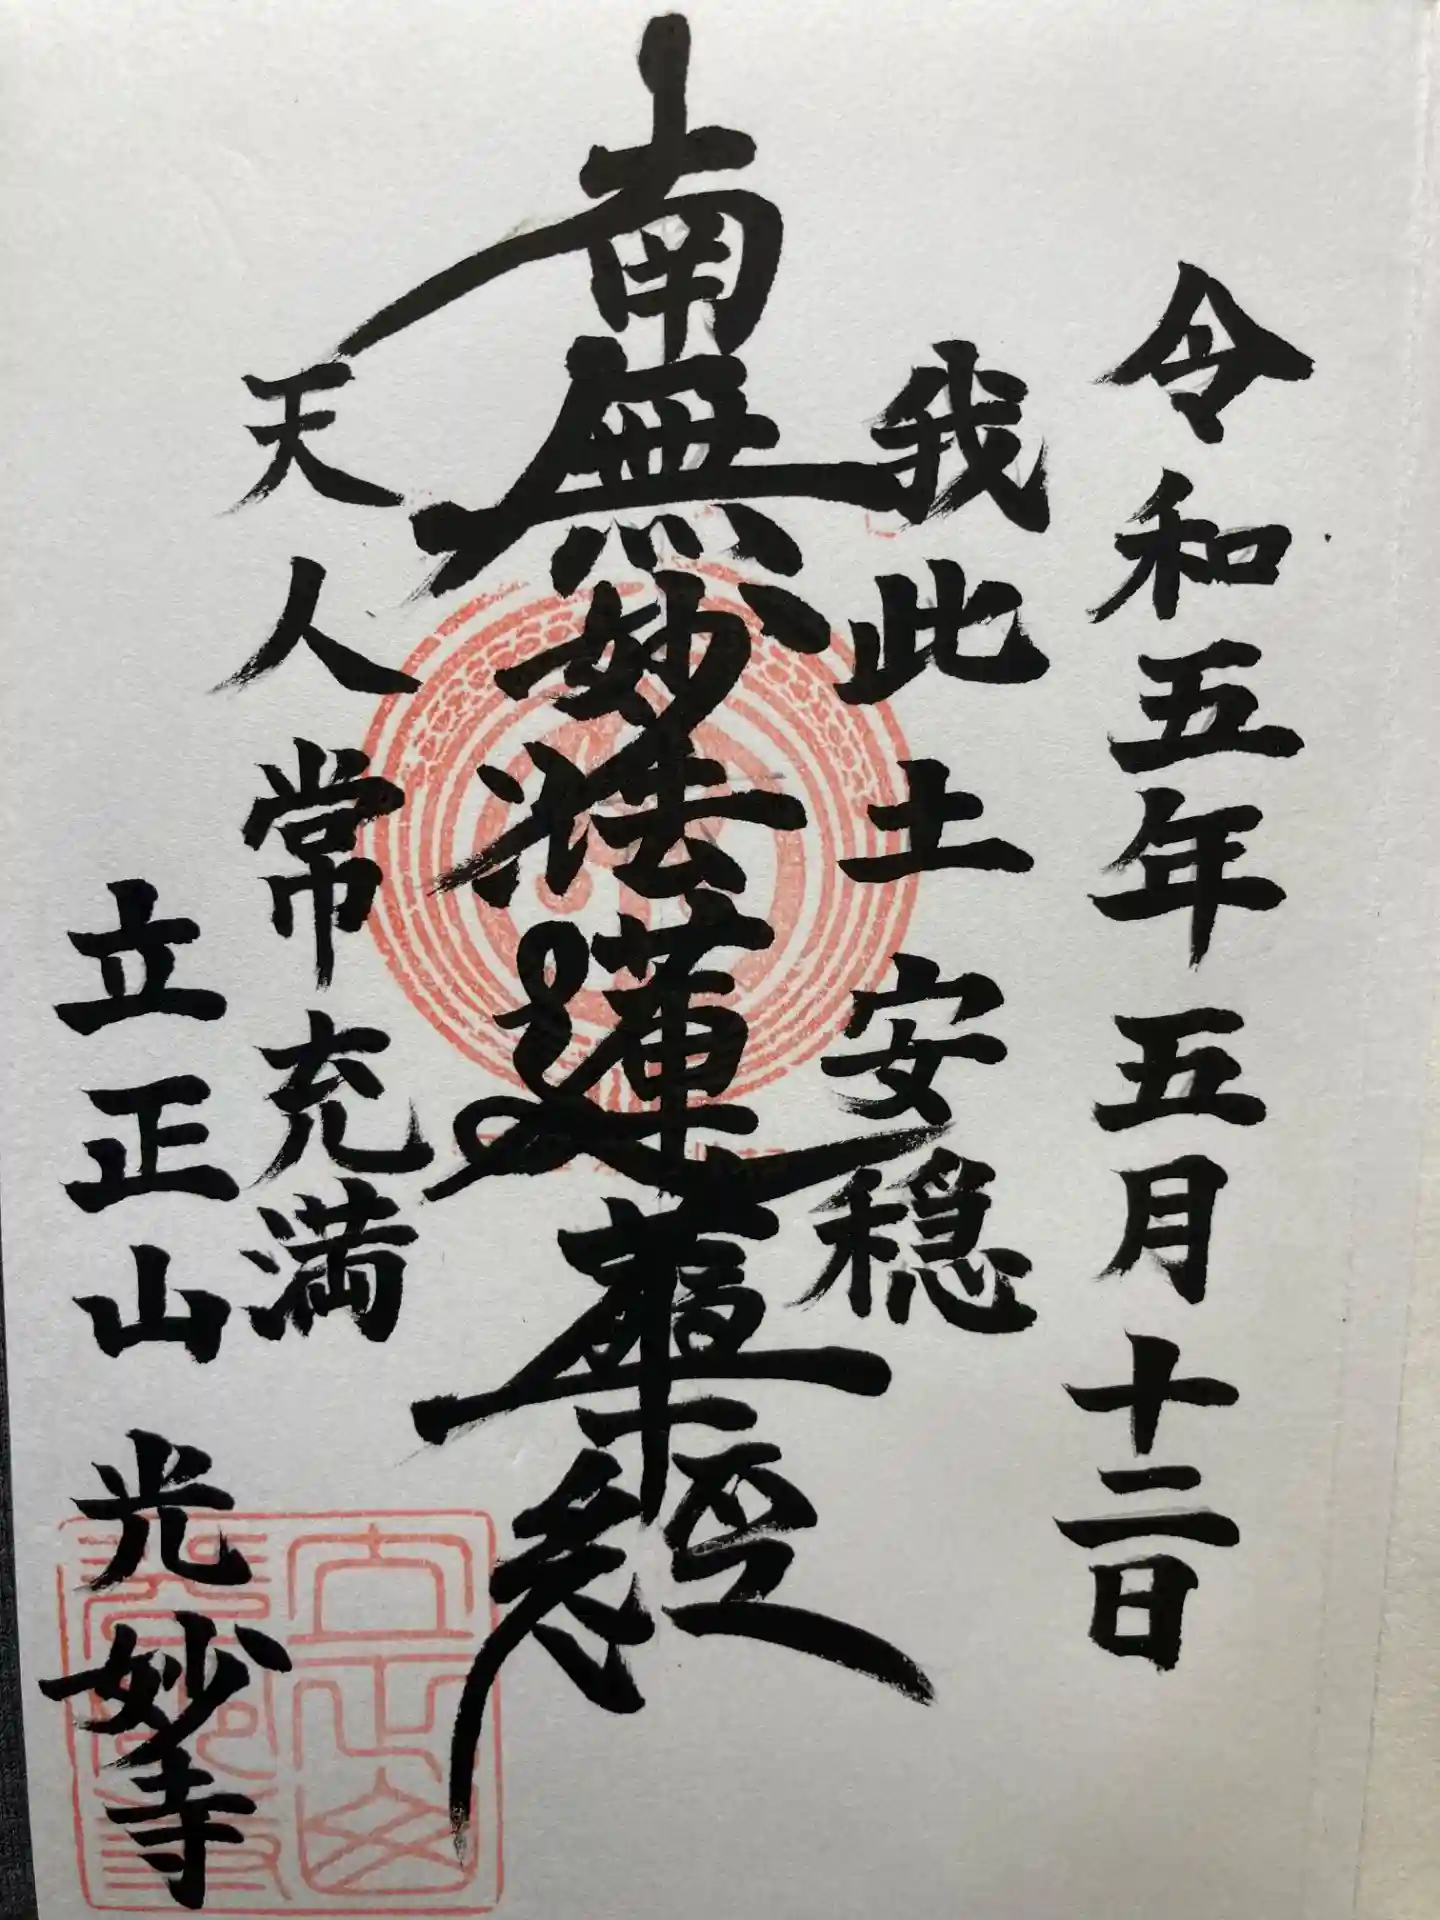 令和五年五月十二日
我此土安穏
南無妙法蓮華経
天人常充満
立正山 光妙寺